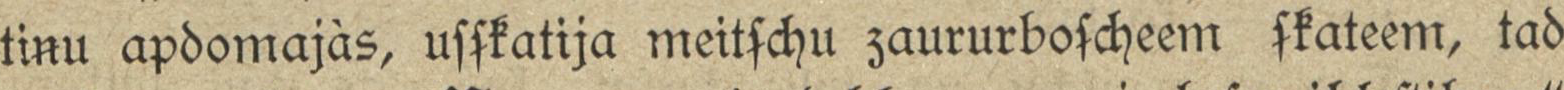 tinu apdomajàs, uſſkatija meitſchu zaururboſcheem ſkateem, tad